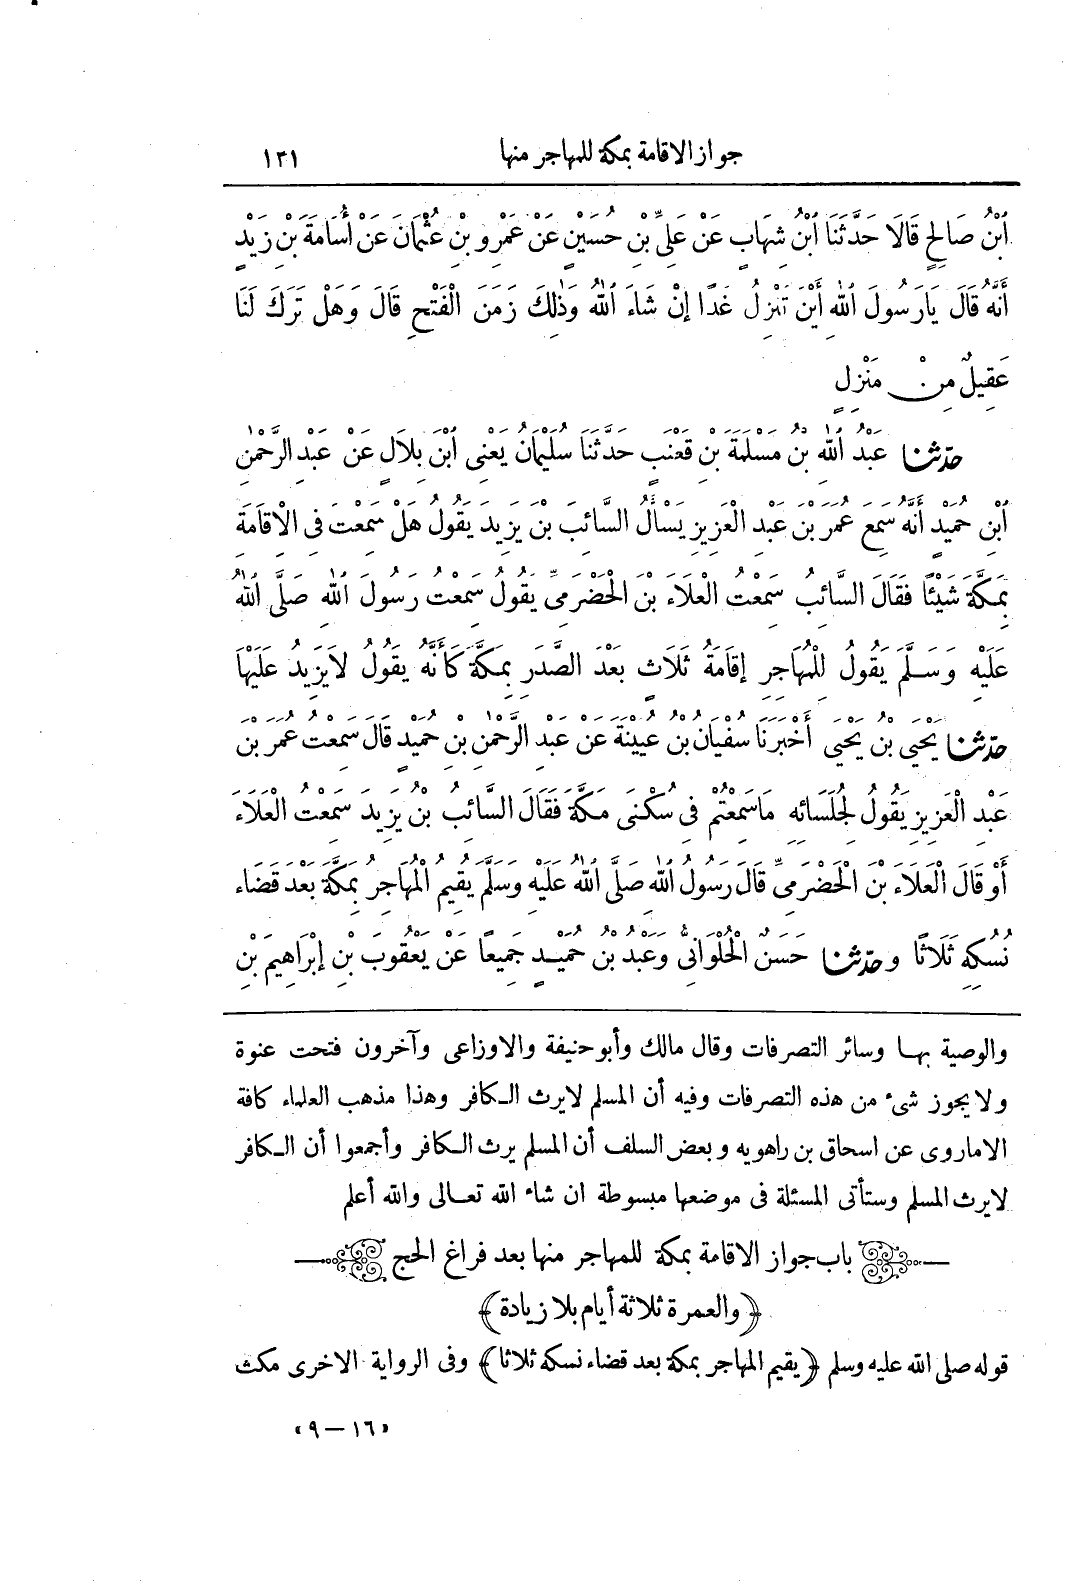 جواز الاقامة بمكة للمهاجر منها ١٢١
ٱبْنُ صَالِحٍ قَالَا حَدَّثَنَا ٱبْنُ شِهَابٍ عَنْ عَلِيِّ بْنِ حُسَيْنٍ عَنْ عَمْرِو بْنِ عُثْمَانَ عَنْ أُسَامَةَ بْنِ زَيْدٍ
أَنَّهُ قَالَ يَارَسُولَ ٱللهِ أَيْنَ تَنْزِلُ غَدًا إِنْ شَاءَ ٱللهُ وَذٰلِكَ زَمَنَ الْفَتْحِ قَالَ وَهَلْ تَرَكَ لَنَا
عَقِيلٌ مِنْ مَنْزِلٍ
حدّثنا عَبْدُ ٱللهِ بْنُ مَسْلَمَةَ بْنِ قَعْنَبٍ حَدَّثَنَا سُلَيْمَانُ يَعْنِى ٱبْنَ بِلَالٍ عَنْ عَبْدِ الرَّحْمٰنِ
ٱبْنِ حُمَيْدٍ أَنَّهُ سَمِعَ عُمَرَ بْنَ عَبْدِ الْعَزِيزِ يَسْأَلُ السَّائِبَ بْنَ يَزِيدَ يَقُولُ هَلْ سَمِعْتَ فِى الْاقَامَةِ
بِمَكَّةَ شَيْئًا فَقَالَ السَّائِبُ سَمِعْتُ الْعَلَاءَ بْنَ الْحَضْرَمِىِّ يَقُولُ سَمِعْتُ رَسُولَ ٱللهِ صَلَّى ٱللهُ
عَلَيْهِ وَسَلَّمَ يَقُولُ لِلْمُهَاجِرِ إِقَامَةُ ثَلَاثٍ بَعْدَ الصَّدَرِ بِمَكَّةَ كَأَنَّهُ يَقُولُ لَايَزِيدُ عَلَيْهَا
حدّثنا يَحْيَى بْنُ يَحْيَى أَخْبَرَنَا سُفْيَانُ بْنُ عُيَيْنَةَ عَنْ عَبْدِ الرَّحْمٰنِ بْنِ حُمَيْدٍ قَالَ سَمِعْتُ عُمَرَ بْنَ
عَبْدِ الْعَزِيزِ يَقُولُ لِجُلَسَائِهِ مَاسَمِعْتُمْ فِى سُكْنَى مَكَّةَ فَقَالَ السَّائِبُ بْنُ يَزِيدَ سَمِعْتُ الْعَلَاءَ
أَوْ قَالَ الْعَلَاءَ بْنَ الْحَضْرَمِىِّ قَالَ رَسُولُ ٱللهِ صَلَّى ٱللهُ عَلَيْهِ وَسَلَّمَ يُقِيمُ الْمُهَاجِرُ بِمَكَّةَ بَعْدَ قَضَاءِ
نُسُكِهِ ثَلَاثًا وحدّثنا حَسَنٌ الْحُلْوَانِىُّ وَعَبْدُ بْنُ حُمَيْدٍ جَمِيعًا عَنْ يَعْقُوبَ بْنِ إِبْرَاهِيمَ بْنِ
والوصية بها وسائر التصرفات وقال مالك وأبو حنيفة والاوزاعى وآخرون فتحت عنوة
ولا يجوز شىء من هذه التصرفات وفيه أن المسلم لا يرث الكافر وهذا مذهب العلماء كافة
الا ماروى عن اسحاق بن راهويه وبعض السلف أن المسلم يرث الكافر وأجمعوا أن الكافر
لا يرث المسلم وستأتى المسئلة فى موضعها مبسوطة ان شاء الله تعالى والله أعلم
باب جواز الاقامة بمكة للمهاجر منها بعد فراغ الحج
﴿والعمرة ثلاثة أيام بلا زيادة﴾
قوله صلى الله عليه وسلم ﴿يقيم المهاجر بمكة بعد قضاء نسكه ثلاثا﴾ وفى الرواية الاخرى مكث
«١٦ — ٩»